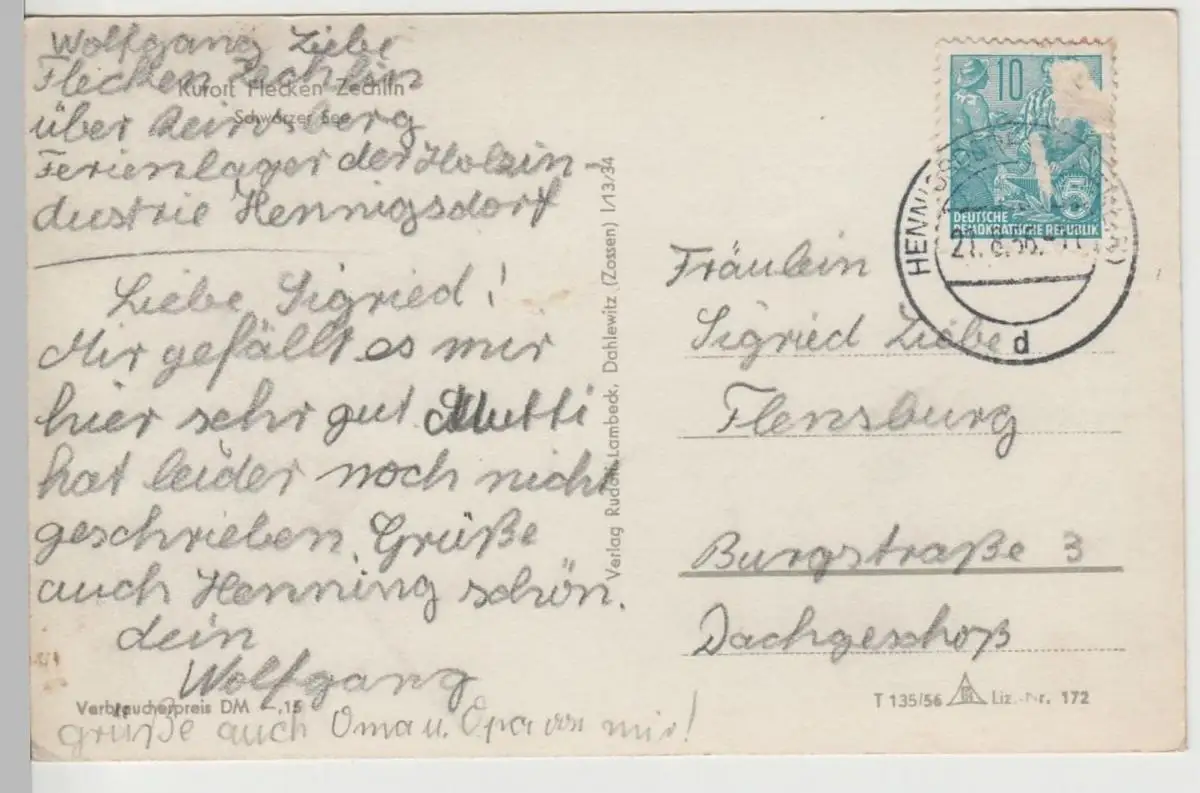 Wolfgang Ziebe
Flecken Zechlin
Kurort Flecken Zechlin
Schwarzer See
über
Ferienlager der Holzin-
dustrie Hennigsdorf
Liebe Sigried!
Mir gefällt es mir
hier sehr gut Mutti
hat leider noch nicht
geschrieben. Grüße
auch Henning schön.
dein
Wolfgang
Verbraucherpreis DM -,15
grüße auch Oma u. Opa von mir!
Verlag Rudolf Lambeck, Dahlewitz (Zossen) I/13/34
10
5
DEUTSCHE
DEMOKRATISCHE REPUBLIK
d
Fräulein
Sigried Ziebe
Flensburg
Burgstraße 3
Dachgeschoß
T 135/56 Liz.-Nr. 172